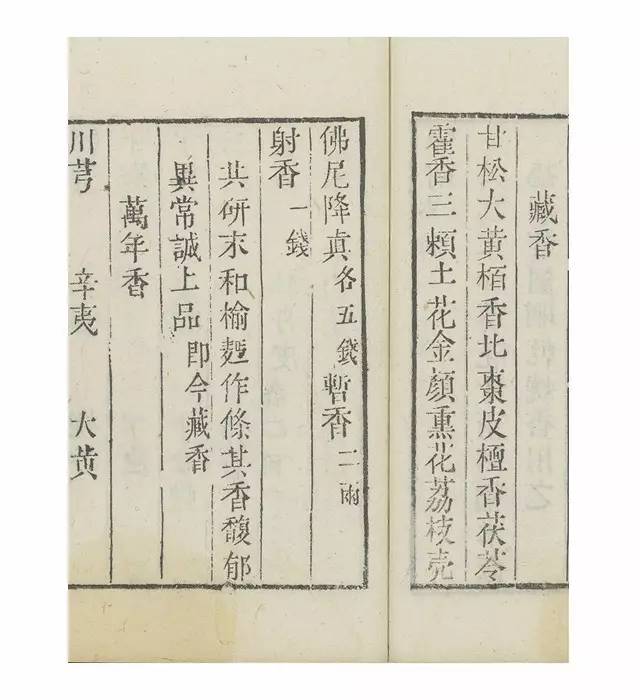 藏香
甘松大黄栢香北棗皮檀香茯苓
霍香三賴土花金顏熏花荔枝壳
佛尼降真各五錢暫香二兩
射香一錢
共研末和榆麪作條其香馥郁
異常誠上品即今藏香
萬年香
川芎 辛夷 大黄